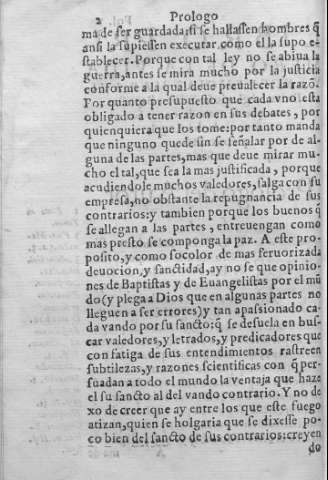 2 Prologo
ma de ser guardada: si se hallassen hombres q̃
ansi la supiessen executar como el la supo e-
stablecer. Porque con tal ley no se abiua la
guerra, antes se mira mucho por la justicia
conforme a la qual deue preualecer la razõ.
Por quanto presupuesto que cada vno esta
obligado a tener razon en sus debates, por
quien quiera que los tome: por tanto manda
que ninguno quede sin se señalar por de al-
guna de las partes, mas que deue mirar mu-
cho el tal, que sea la mas justificada, porque
acudiendole muchos valedores, salga con su
empresa, no obstante la repugnancia de sus
contrarios: y tambien porque los buenos q̃
se allegan a las partes, entreuengan como
mas presto se componga la paz. A este pro-
posito, y como so color de mas feruorizada
deuocion, y sanctidad, ay no se que opinio-
nes de Baptistas y de Euangelistas por el mũ
do (y plega a Dios que en algunas partes no
lleguen a ser errores) y tan apassionado ca-
da vando por su sancto: q̃ se desuela en bus-
car valedores, y letrados, y predicadores que
con fatiga de sus entendimientos rastreen
subtilezas, y razones scientificas con q̃ per-
suadan a todo el mundo la ventaja que haze
el su sancto al del vando contrario. Y no de
xo de creer que ay entre los que este fuego
atizan, quien se holgaria que se dixesse po-
co bien del sancto de sus contrarios: creyen
do